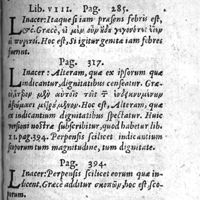 Lib. VIII. Pag. 285.
Linacer: Itaque si iam præsens febris est,
&c. Græcè, εἰ μὲν οὖν ἤδη γεγονυῖα
πυρετοί. Hoc est, Si igitur genita iam febres
fuerint.
Pag. 317.
Linacer: Alteram, quæ ex ipsorum quæ
indicantur, dignitatibus censetur. Græcè,
δευτέραν μὲν αὐτοῖς τοῖς ἐξ ἐνδεικνυμένων
Hoc est, Alteram, quæ
ex indicantium dignitatibus spectatur. Huic
versioni nostræ subscribitur, quod habetur lib.
11. pag. 394. Perpensis scilicet indicantium
ipsorum tum magnitudine, tum dignitate.
Pag. 394.
Linacer: Perpensis scilicet eorum quæ in-
dicent, Græcè additur σκοπῶν, hoc est sco-
porum.